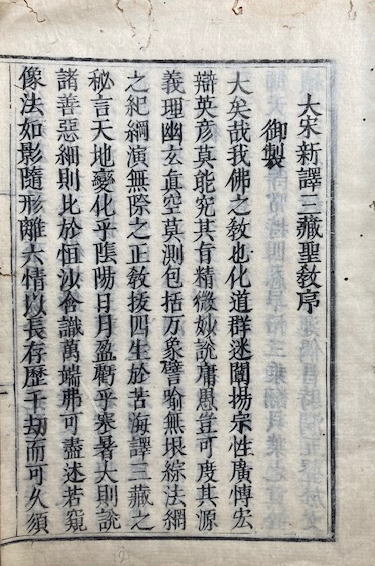 大宋新譯三藏聖教序
御製
大矣哉我佛之教也化道群迷闡揚宗性廣慱宏
辯英彦莫能究其旨精微妙說庸愚豈可度其源
義理幽玄真空莫測包括万象譬喻無垠綜法網
之紀綱演無際之正教拔四生於苦海譯三藏之
秘言天地變化乎陰陽日月盈虧乎寒暑大則說
諸善惡細則比於恒沙含識萬端弗可盡述若窺
像法如影隨形離六情以長存歷千劫而可久須